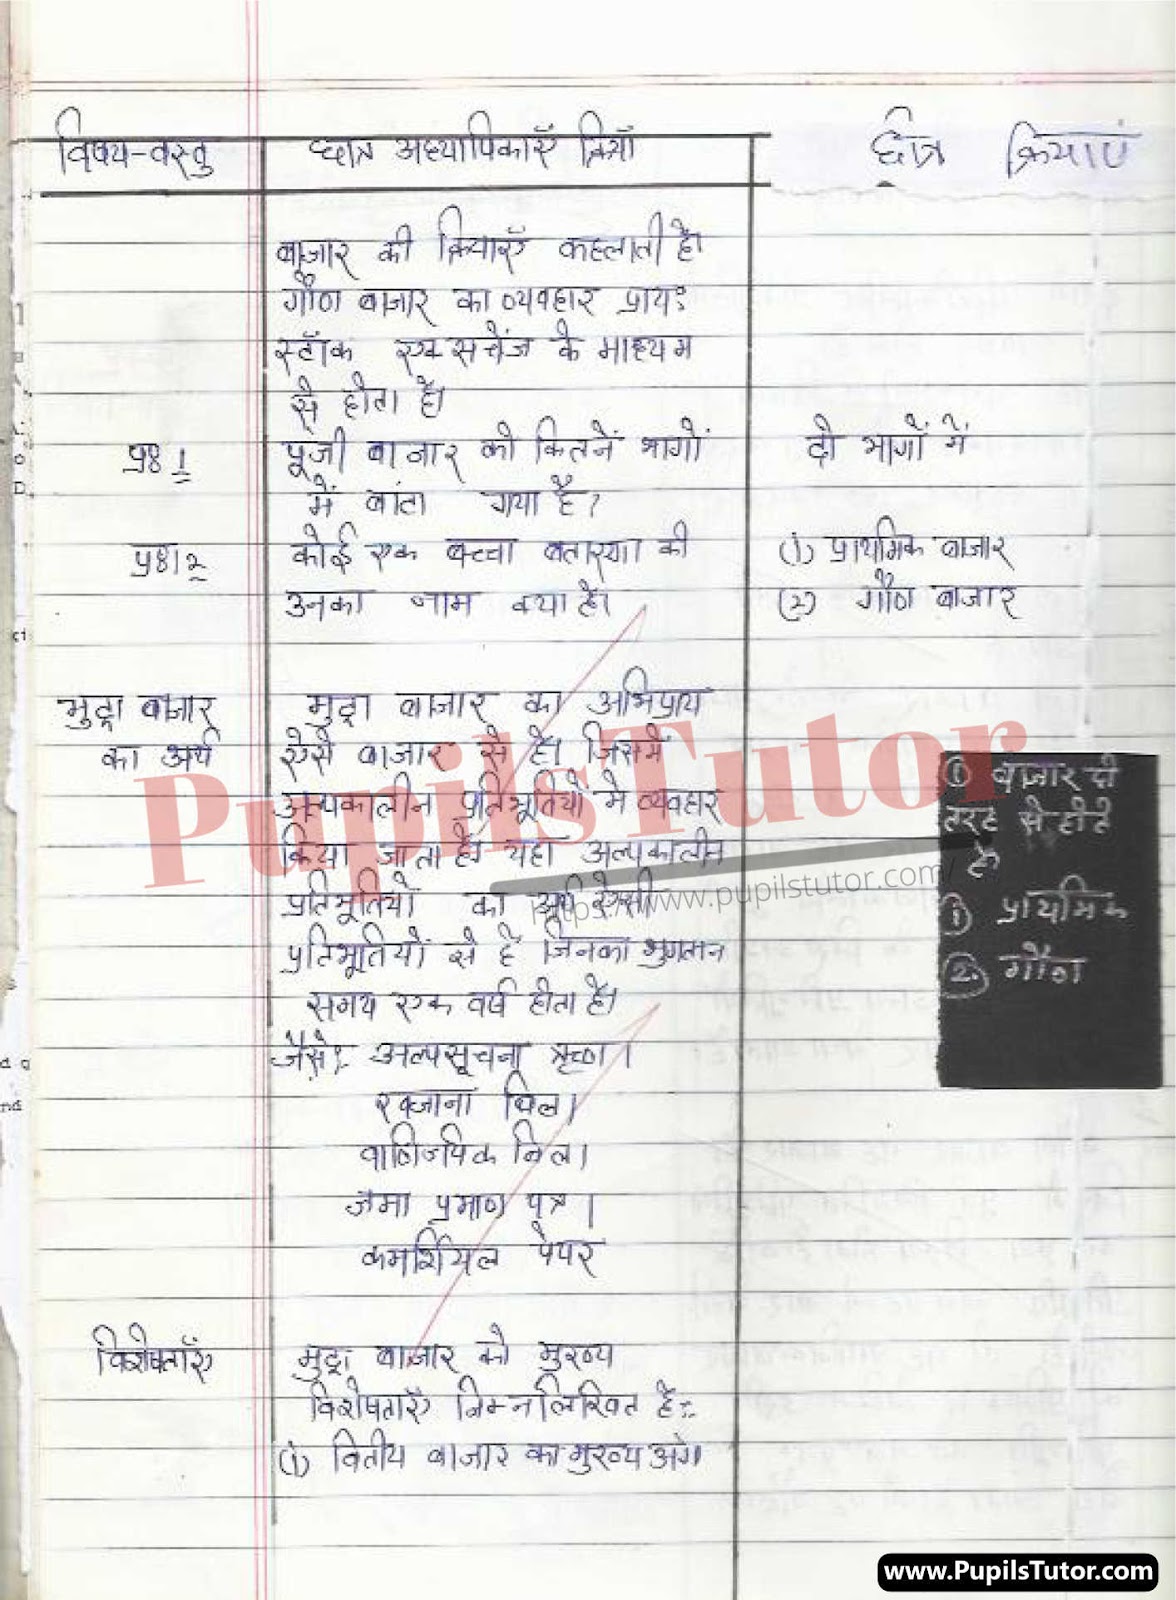 विषय-वस्तु
छात्र अध्यापिकाएँ क्रियाँ
छात्र क्रियाएं
बाजार की क्रियाएँ कहलाती है।
गौण बाजार का व्यवहार प्रायः
स्टॉक एक्सचेंज के माध्यम
से होता है।
प्रश्न 1
पूंजी बाजार को कितनें भागों
में बांटा गया है?
दो भागों में
प्रश्न 2
कोई एक बच्चा बताएगा की
उनका नाम क्या है।
(1) प्राथमिक बाजार
(2) गौण बाजार
मुद्रा बाजार
का अर्थ
मुद्रा बाजार का अभिप्राय
ऐसे बाजार से है। जिसमें
अल्पकालीन प्रतिभूतियों में व्यवहार
किया जाता है। यहा अल्पकालीन
प्रतिभूतियों का अर्थ ऐसी
प्रतिभूतियों से है जिनका भुगतान
समय एक वर्ष होता है।
जैसेः अल्पसूचना ऋण।
खजाना बिल।
वाणिज्यिक बिल।
जमा प्रमाण पत्र।
कमर्शियल पेपर
① बाजार दो
तरह से होते
है।
① प्राथमिक
② गौण
विशेषताएँ
मुद्रा बाजार की मुख्य
विशेषताएँ निम्नलिखित है:-
(1) वितीय बाजार का मुख्य अंग
PupilsTutor
https://www.pupilstutor.com/
www.PupilsTutor.com